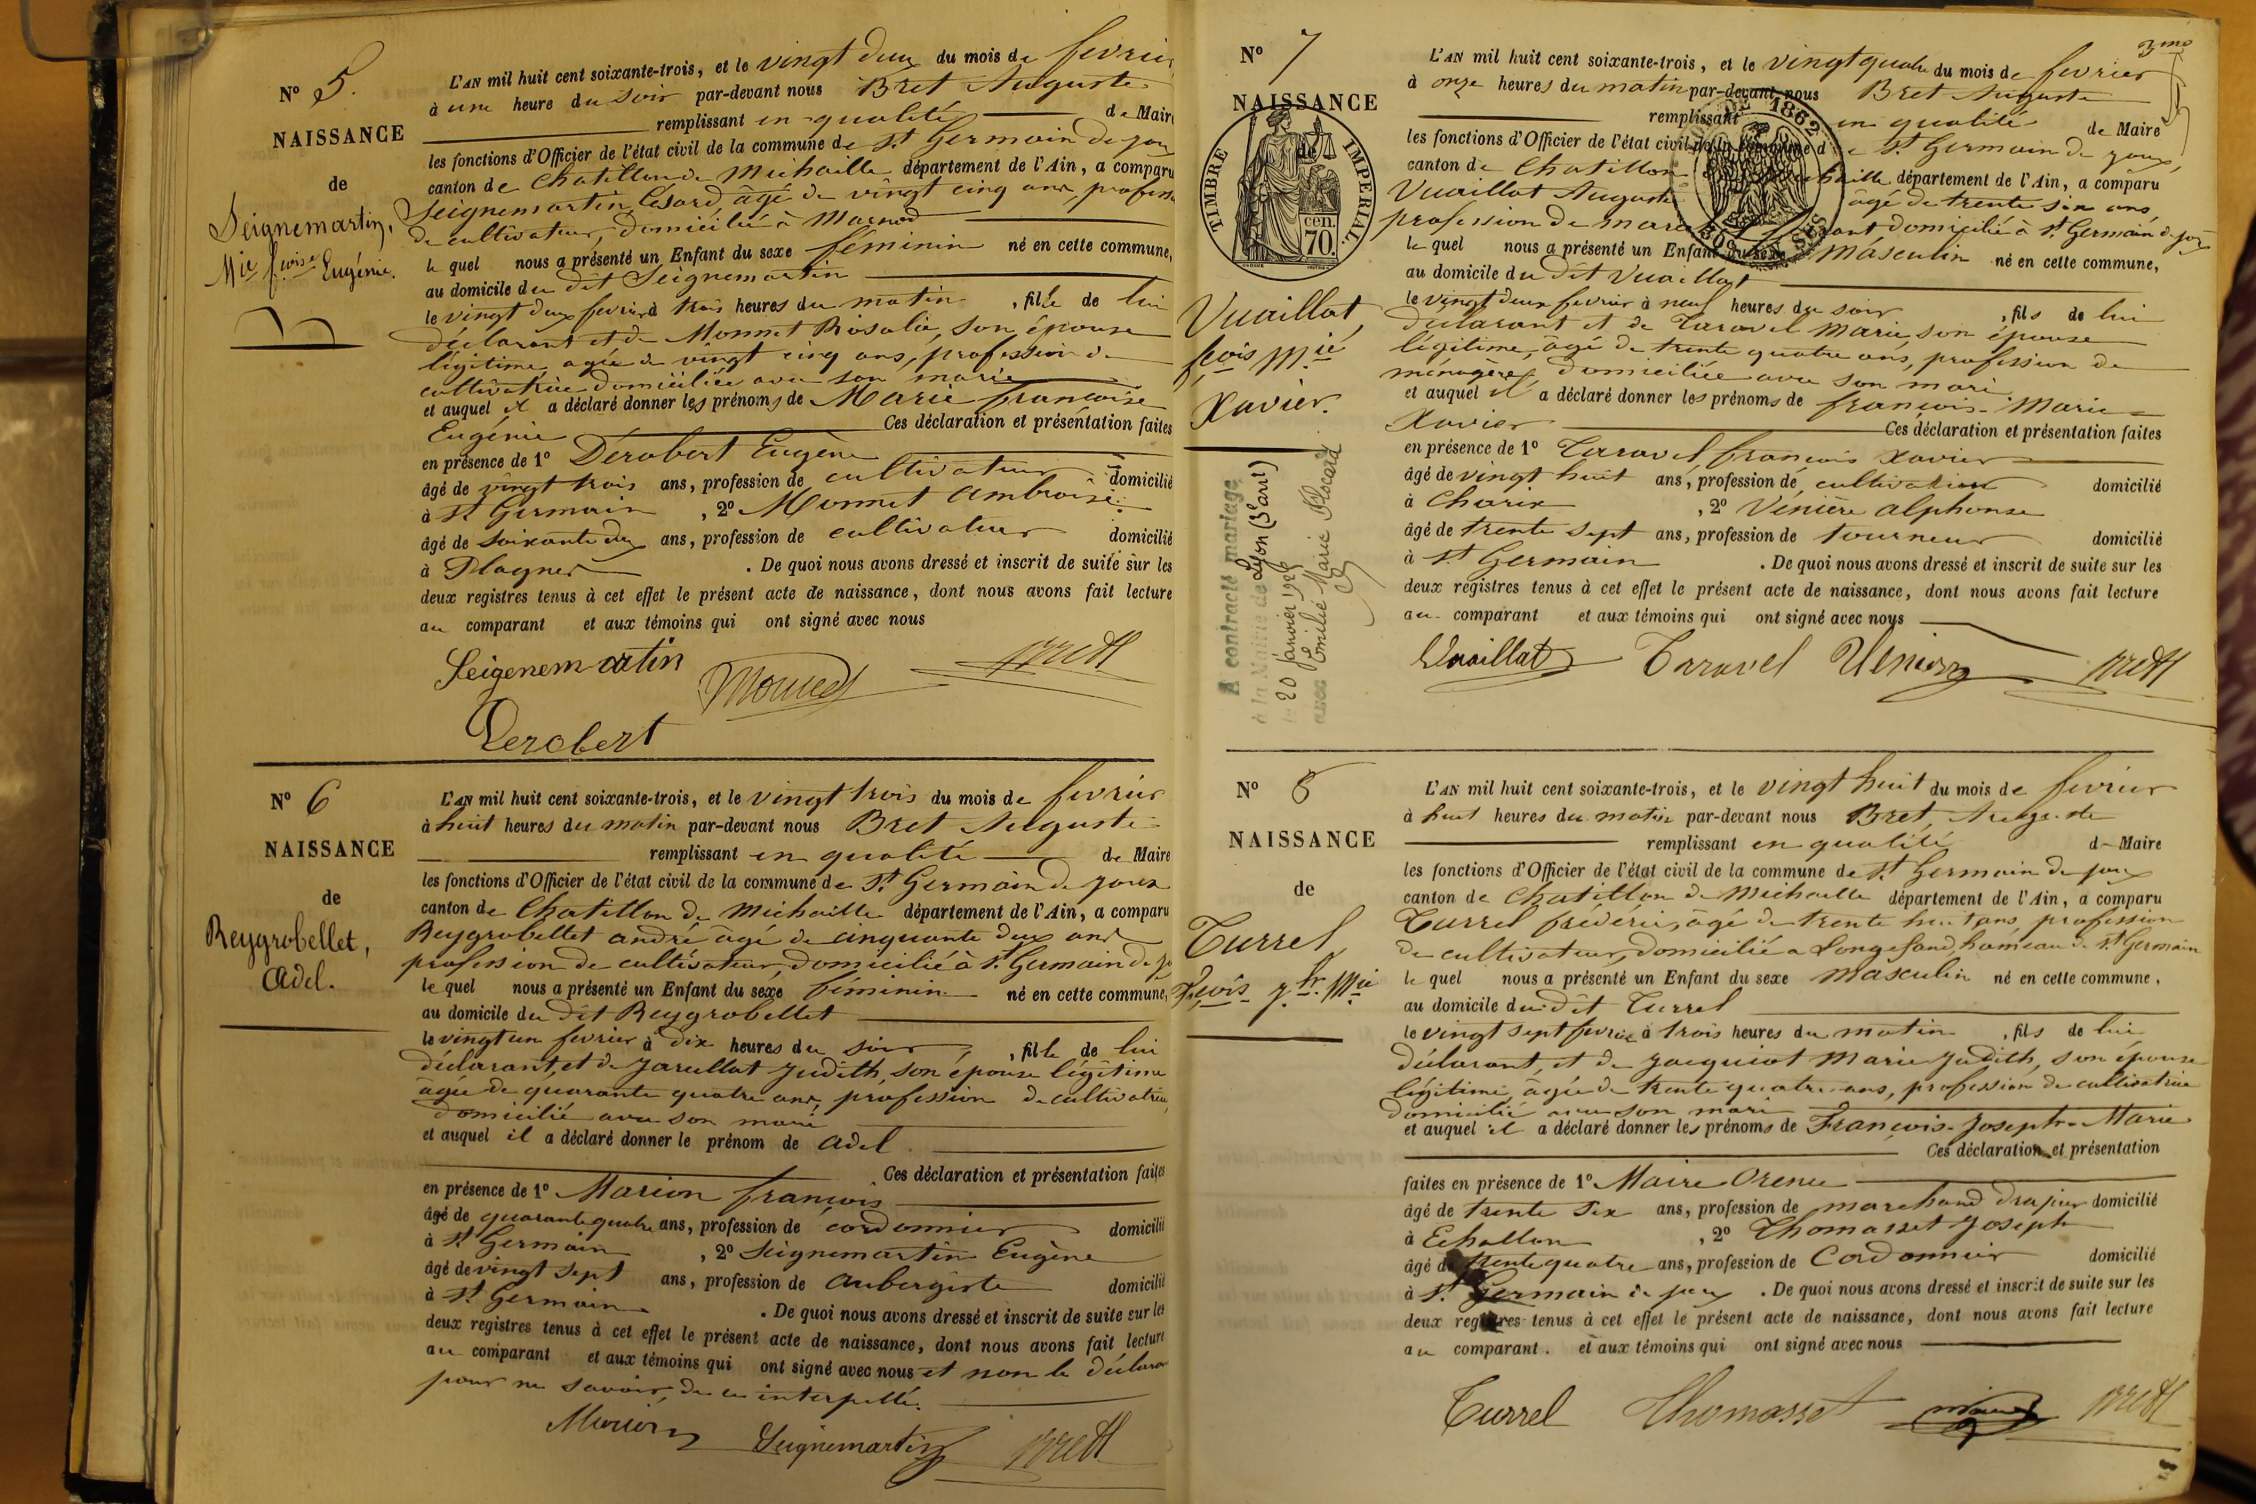 N° 5.
NAISSANCE
de
Seignemartin,
Mie fcoise Eugénie.
L'AN mil huit cent soixante-trois, et le vingt deux du mois de fevrier
à une heure du soir par-devant nous Bret Auguste
remplissant en qualité de Maire
les fonctions d'Officier de l'état civil de la commune de St Germain de joux
canton de Chatillon de Michaille département de l'Ain, a comparu
Seignemartin Césard, âgé de vingt cinq ans, profession
de cultivateur, domicilié à Marnod
le quel nous a présenté un Enfant du sexe féminin né en cette commune,
au domicile du dit Seignemartin
le vingt deux fevrier à trois heures du matin, fille de lui
déclarant et de Monnet Rosalie, son épouse
légitime agée de vingt cinq ans, profession de
cultivatrice domiciliée avec son marie
et auquel il a déclaré donner les prénoms de Marie françoise
Eugénie Ces déclaration et présentation faites
en présence de 1° Dérobert Eugène
âgé de vingt trois ans, profession de cultivateur domicilié
à St Germain, 2° Monnet Ambroise
âgé de soixante dix ans, profession de cultivateur domicilié
à Plagnes. De quoi nous avons dressé et inscrit de suite sur les
deux registres tenus à cet effet le présent acte de naissance, dont nous avons fait lecture
au comparant et aux témoins qui ont signé avec nous
Seigenemartin Monnet Brett
Derobert
N° 6
NAISSANCE
de
Reygrobellet,
Adel.
L'AN mil huit cent soixante-trois, et le vingt trois du mois de fevrier
à huit heures du matin par-devant nous Bret Auguste
remplissant en qualité de Maire
les fonctions d'Officier de l'état civil de la commune de St Germain de joux
canton de Chatillon de Michaille département de l'Ain, a comparu
Reygrobellet andré âgé de cinquante deux ans
profession de cultivateur, domicilié à St Germain de jo
le quel nous a présenté un Enfant du sexe feminin né en cette commune,
au domicile du dit Reygrobellet
le vingt un fevrier à dix heures du soir, fille de lui
déclarant, et de Jarullat Judith, son épouse légitime
âgée de quarante quatre ans, profession de cultivatrice,
domicilié avec son marie
et auquel il a déclaré donner le prénom de Adel
Ces déclaration et présentation faites
en présence de 1° Marion françois
âgé de quarante quatre ans, profession de cordonnier domicilié
à St Germain, 2° Seignemartin Eugène
âgé de vingt sept ans, profession de aubergiste domicilié
à St Germain. De quoi nous avons dressé et inscrit de suite sur les
deux registres tenus à cet effet le présent acte de naissance, dont nous avons fait lecture
au comparant et aux témoins qui ont signé avec nous et non le déclarant
pour ne savoir, de ce interpellé.
Marion Seignemartin Brett
3me
N° 7
NAISSANCE
de
TIMBRE IMPERIAL
70 cen.
1862
Vuaillat,
fcois Mie
Xavier.
A contracté mariage
à la Mairie de Lyon (3e arrt)
le 20 janvier 1926
avec Emilie Marie Flocard
L'AN mil huit cent soixante-trois, et le vingt quatre du mois de fevrier
à onze heures du matin par-devant nous Bret Auguste
remplissant en qualité de Maire
les fonctions d'Officier de l'état civil de la commune de St Germain de joux,
canton de Chatillon de Michaille département de l'Ain, a comparu
Vuaillat Auguste âgé de trente six ans,
profession de domicilié à St Germain de joux
le quel nous a présenté un Enfant du sexe Masculin né en cette commune,
au domicile du dit Vuaillat
le vingt deux fevrier à neuf heures du soir, fils de lui
déclarant et de Taravel Marie, son épouse
légitime, âgé de trente quatre ans, profession de
ménagère, domiciliée avec son mari
et auquel il a déclaré donner les prénoms de françois-Marie
Xavier Ces déclaration et présentation faites
en présence de 1° Taravel françois Xavier
âgé de vingt huit ans, profession de cultivateur domicilié
à Charix, 2° Vénière Alphonse
âgé de trente sept ans, profession de tourneur domicilié
à St Germain. De quoi nous avons dressé et inscrit de suite sur les
deux registres tenus à cet effet le présent acte de naissance, dont nous avons fait lecture
au comparant et aux témoins qui ont signé avec nous
Vuaillat Taravel Brett
N° 8
NAISSANCE
de
Turrel,
L'AN mil huit cent soixante-trois, et le vingt huit du mois de fevrier
à huit heures du matin par-devant nous Bret Auguste
remplissant en qualité de Maire
les fonctions d'Officier de l'état civil de la commune de St Germain de joux
canton de Chatillon de Michaille département de l'Ain, a comparu
Turrel frederic, âgé de trente huit ans, profession
de cultivateur, domicilié a Longefand, hameau de St Germain
le quel nous a présenté un Enfant du sexe masculin né en cette commune,
au domicile du dit Turrel
le vingt sept fevrier à trois heures du matin, fils de lui
déclarant, et de Jacquiot Marie Judith, son épouse
légitime, âgée de trente quatre ans, profession de cultivatrice
domicilié avec son mari
et auquel il a déclaré donner les prénoms de François-Joseph-Marie
Ces déclaration et présentation
faites en présence de 1° Maire Orence
âgé de trente six ans, profession de marchand drapier domicilié
à Echallon, 2° Thomasset Joseph
âgé de trente quatre ans, profession de Cordonnier domicilié
à St Germain de joux. De quoi nous avons dressé et inscrit de suite sur les
deux registres tenus à cet effet le présent acte de naissance, dont nous avons fait lecture
au comparant. et aux témoins qui ont signé avec nous
Turrel Thomasset Brett